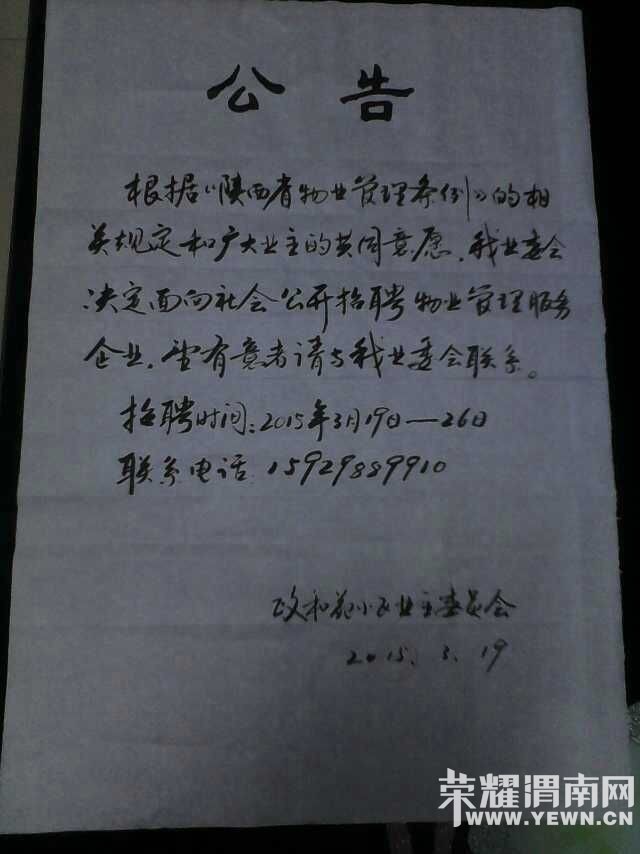 公告
根据《陕西省物业管理条例》的相
关规定和广大业主的共同意愿，我业委会
决定面向社会公开招聘物业管理服务
企业，望有意者请与我业委会联系。
招聘时间：2015年3月19日—26日
联系电话：15929889910
政和苑小区业主委员会
2015.3.19
荣耀渭南网
WWW.YEWN.CN